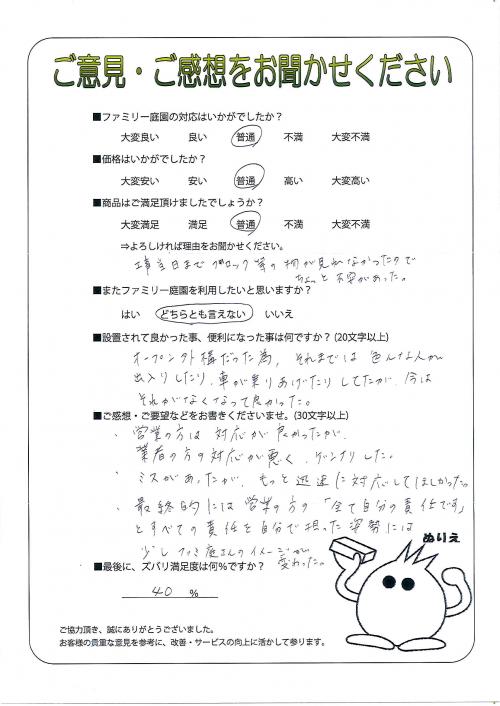 ご意見・ご感想をお聞かせください
■ファミリー庭園の対応はいかがでしたか？
大変良い 良い 普通 不満 大変不満
■価格はいかがでしたか？
大変安い 安い 普通 高い 大変高い
■商品はご満足頂けましたでしょうか？
大変満足 満足 普通 不満 大変不満
⇒よろしければ理由をお聞かせください。
工事当日までブロック等の柄が見れなかったので
ちょっと不安があった。
■またファミリー庭園を利用したいと思いますか？
はい どちらとも言えない いいえ
■設置されて良かった事、便利になった事は何ですか？(20文字以上)
オープン外構だった為、それまでは色んな人が
出入りしたり、車が乗りあげたりしてたが、今は
それがなくなって良かった。
■ご感想・ご要望などをお書きくださいませ。(30文字以上)
・営業の方は対応が良かったが、
業者の方の対応が悪く、ゲンナリした。
・ミスがあったが、もっと迅速に対応してほしかった。
・最終的には営業の方の「全て自分の責任です」
とすべての責任を自分で担った姿勢には
少しファミ庭さんのイメージが
変わった。
ぬりえ
■最後に、ズバリ満足度は何％ですか？
40 %
ご協力頂き、誠にありがとうございました。
お客様の貴重な意見を参考に、改善・サービスの向上に活かして参ります。